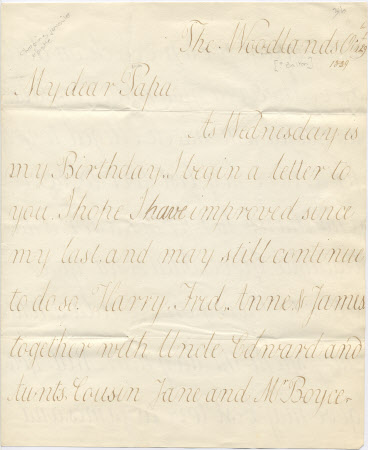 The Woodlands
1829
My dear Papa
As Wednesday is
my Birthday, I begin a letter to
you, I hope I have improved since
my last, and may still continue
to do so. Harry, Fred, Anne & James
together with Uncle Edward and
Aunts, Cousin Jane and Mr Boyce.